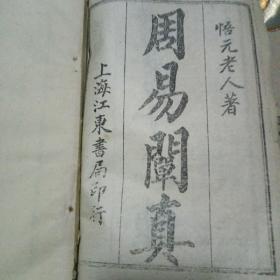 悟元老人著
周易闡真
上海江東書局印行